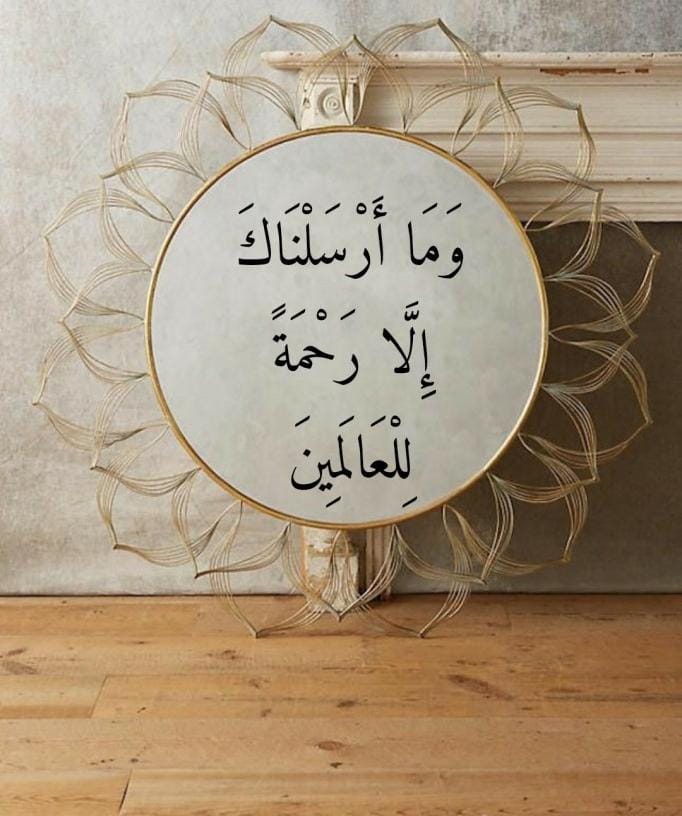 وَمَا أَرْسَلْنَاكَ
إِلَّا رَحْمَةً
لِلْعَالَمِينَ